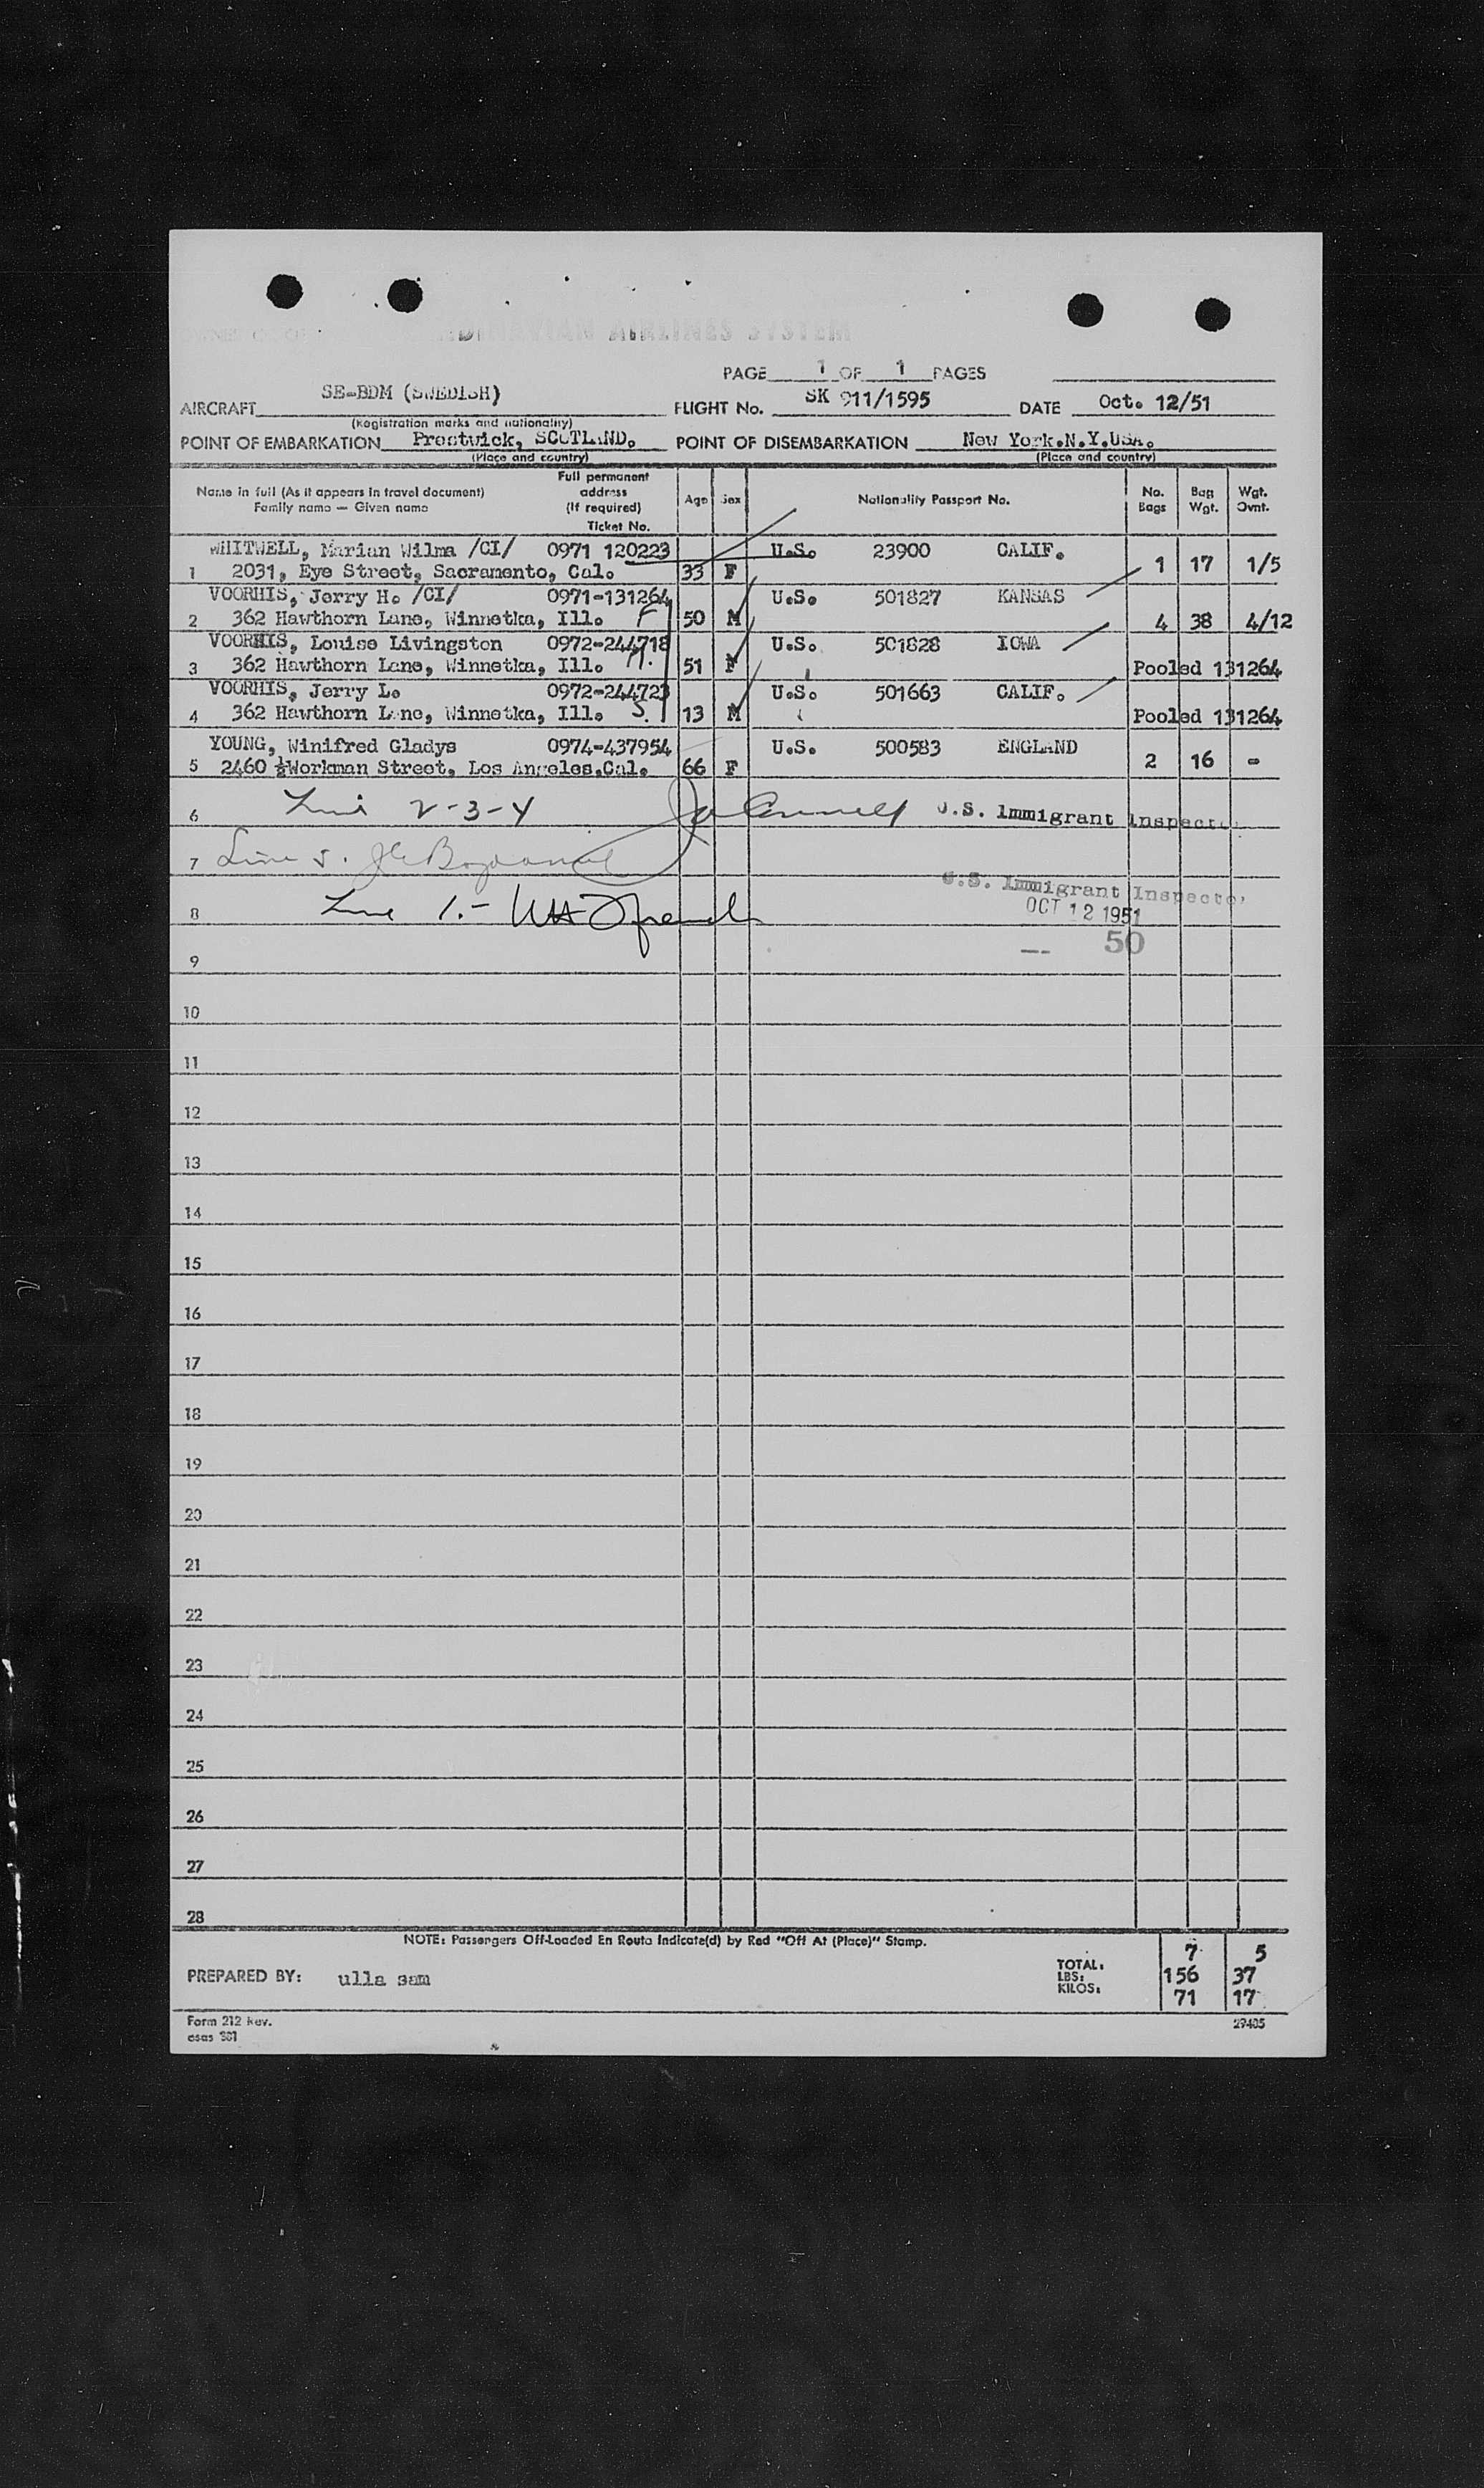 AIRLINES SYSTEM
PAGE 1 OF 1 PAGES
AIRCRAFT SE-BDM (SWEDISH) FLIGHT No. SK 911/1595 DATE Oct. 12/51
(Registration marks and nationality)
POINT OF EMBARKATION Prestwick, SCOTLAND. POINT OF DISEMBARKATION New York.N.Y.USA.
(Place and country) (Place and country)
Name in full (As it appears in travel document) Family name — Given name Full permanent address (If required) Ticket No. Age Sex Nationality Passport No. No. Bags Bag Wgt. Wgt. Ovnt.
WHITWELL, Marian Wilma /CI/ 0971 120223 U.S. 23900 CALIF.
1 2031, Eye Street, Sacramento, Cal. 33 F 1 17 1/5
VOORHIS, Jerry H. /CI/ 0971-131264 U.S. 501827 KANSAS
2 362 Hawthorn Lane, Winnetka, Ill. F 50 M 4 38 4/12
VOORHIS, Louise Livingston 0972-244718 U.S. 501828 IOWA
3 362 Hawthorn Lane, Winnetka, Ill. M. 51 F Pooled 131264
VOORHIS, Jerry L. 0972-244723 U.S. 501663 CALIF.
4 362 Hawthorn Lane, Winnetka, Ill. S. 13 M Pooled 131264
YOUNG, Winifred Gladys 0974-437954 U.S. 500583 ENGLAND
5 2460 ½Workman Street, Los Angeles.Cal. 66 F 2 16 -
6 Line 2-3-4 U.S. Immigrant Inspector
7 Line 5.
U.S. Immigrant Inspector
8 Line 1.-
OCT 12 1951
50
9
10
11
12
13
14
15
16
17
18
19
20
21
22
23
24
25
26
27
28
NOTE: Passengers Off-Loaded En Route Indicate(d) by Red "Off At (Place)" Stamp.
PREPARED BY: ulla sam
TOTAL: 7 5
LBS: 156 37
KILOS: 71 17
Form 212 Rev.
29405